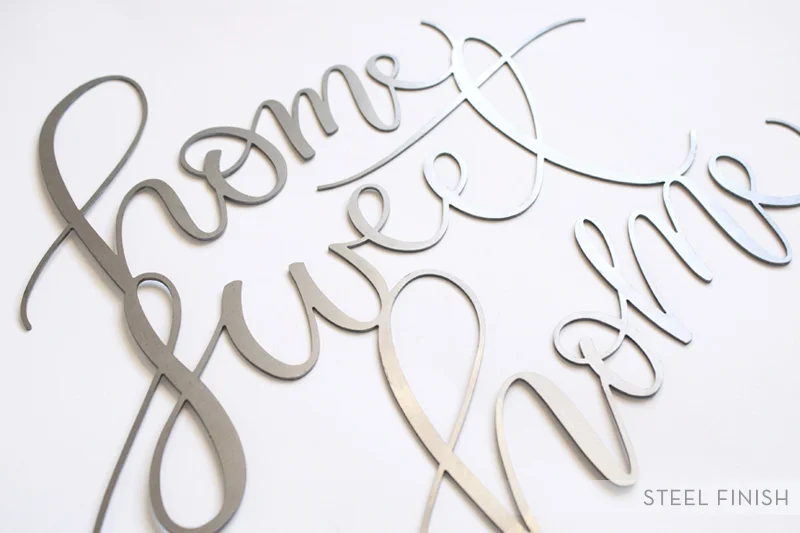 home
sweet
home
STEEL FINISH